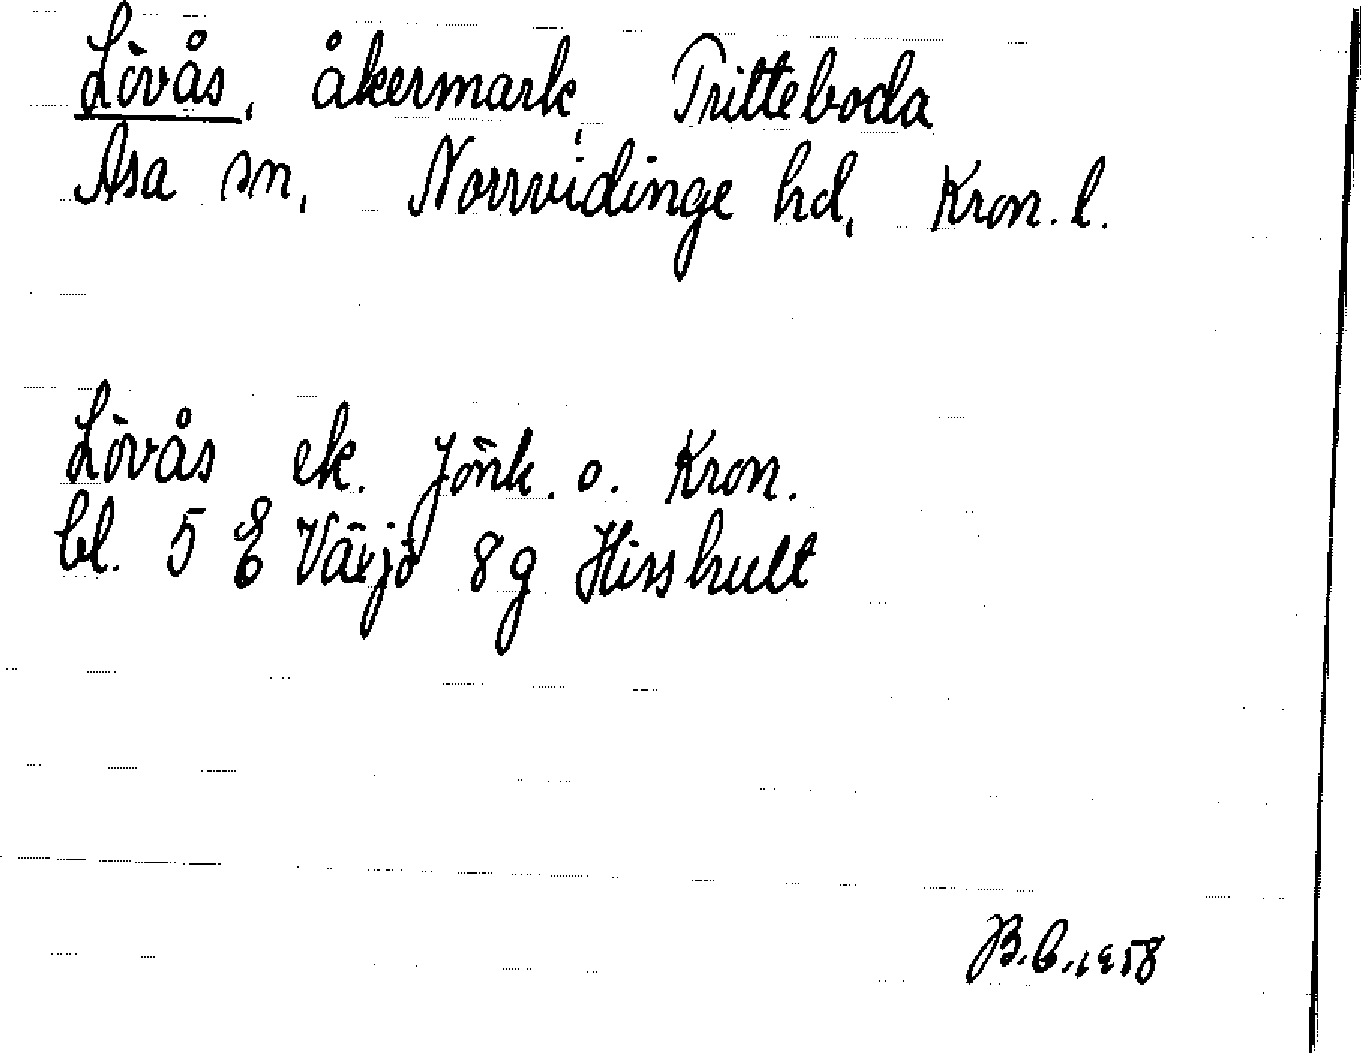 Lövås, åkermark, Tritteboda
Asa sn, Norrvidinge hd, Kron. l.
Lövås ek. Jönk. o. Kron.
bl. 5 E Växjö 8 g Hisshult
B. C. 1958